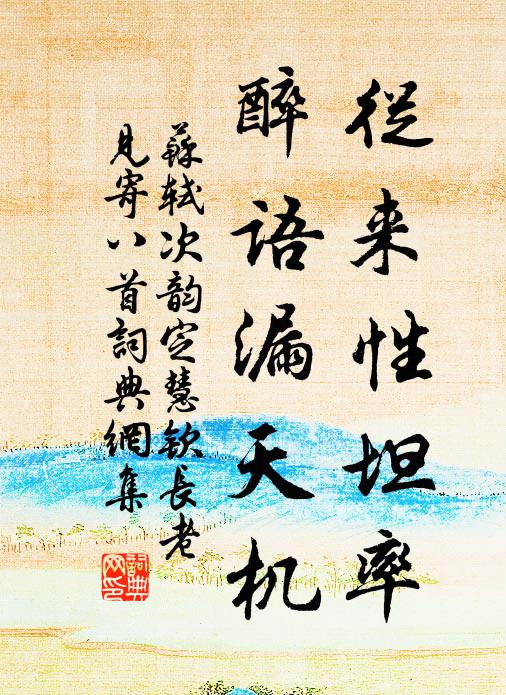 従来性坦率
醉语漏天机
蘇轼次韵定慧欽長老
見寄八首詞典網集
詞典
网印